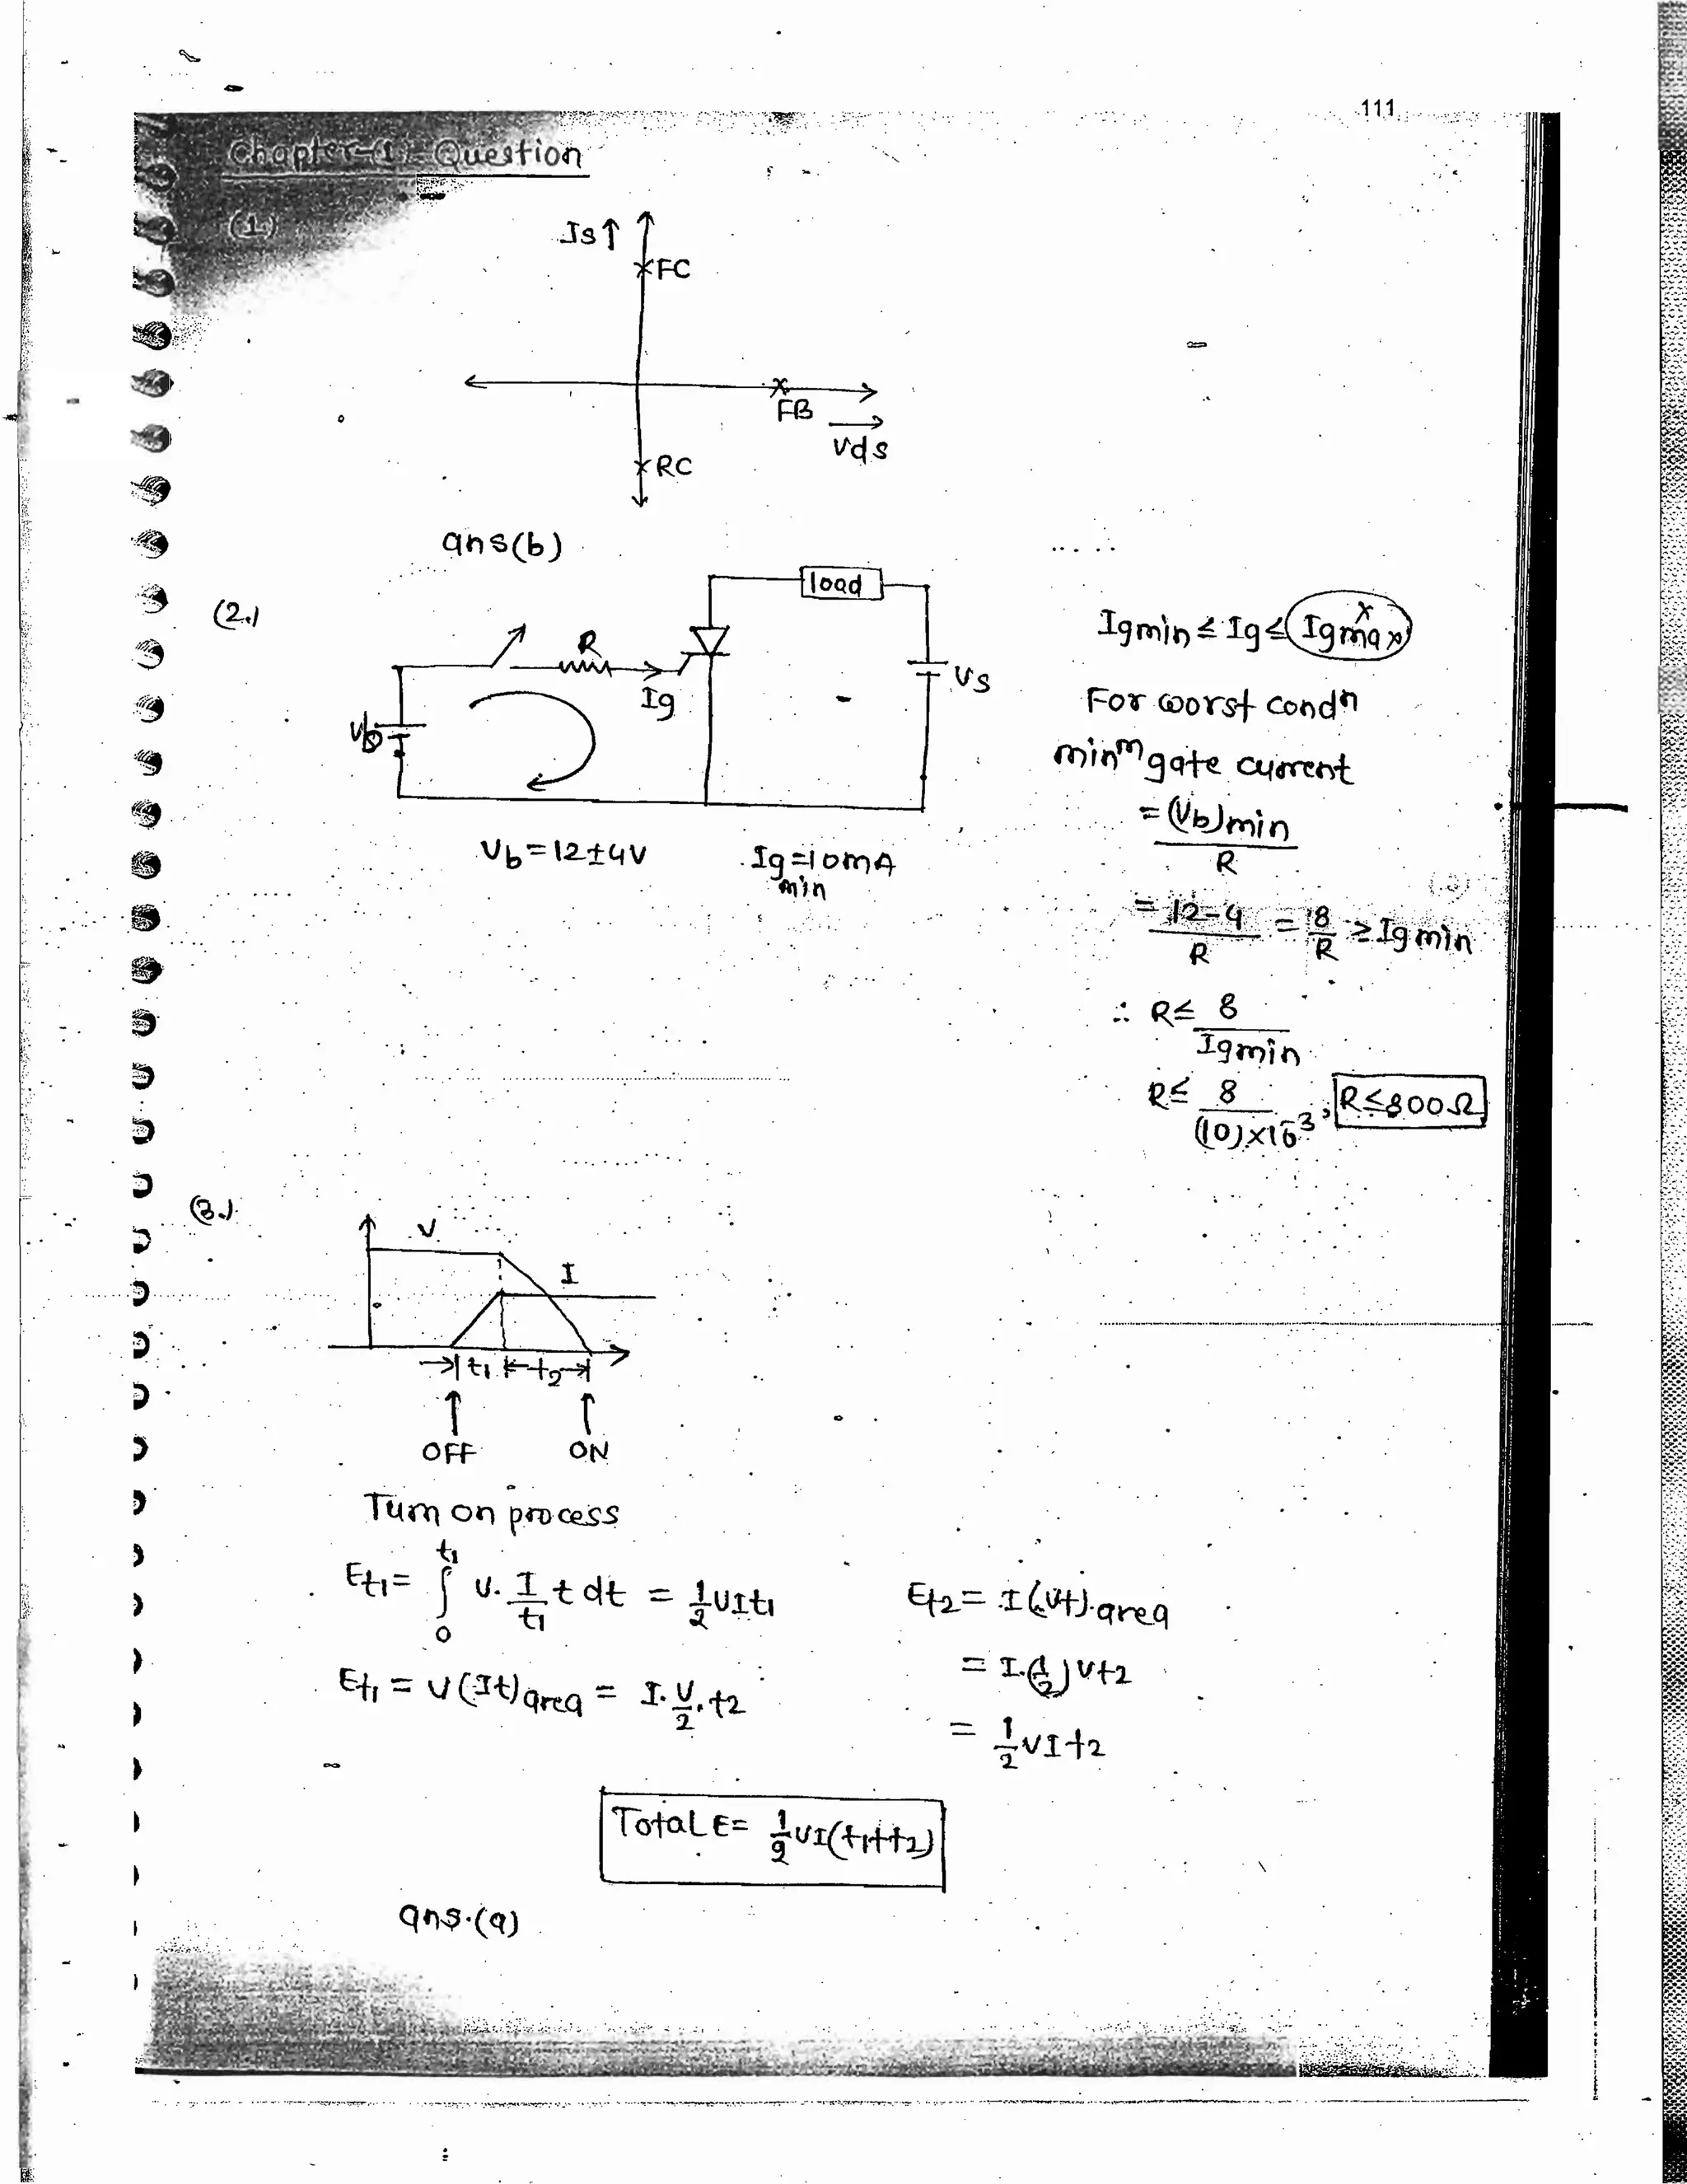 111
Chapter-(1) - Question
(1)
Is↑
FC
FB
Vds
RC
ans(b)
(2.)
load
R
Ig
Vb
Vs
Vb = 12±4V
Ig = 10mA
min
Igmin ≤ Ig ≤ Igmax
x
For worst condⁿ
minᵐ gate current
= (Vb)min
R
= 12-4 = 8 ≥ Igmin
R R
∴ R ≤ 8
Igmin
R ≤ 8 , R ≤ 800Ω
(10)×10⁻³
(3.)
V
I
t1 t2
OFF ON
Turn on process
Et1 = ∫₀^t1 V. I/t1 t dt = 1/2 VIt1
Et1 = V(It)area = I. V/2. t2
Et2 = I(Vt).area
= I.(1/2)Vt2
= 1/2 VIt2
Total E = 1/2 VI(t1+t2)
ans.(a)